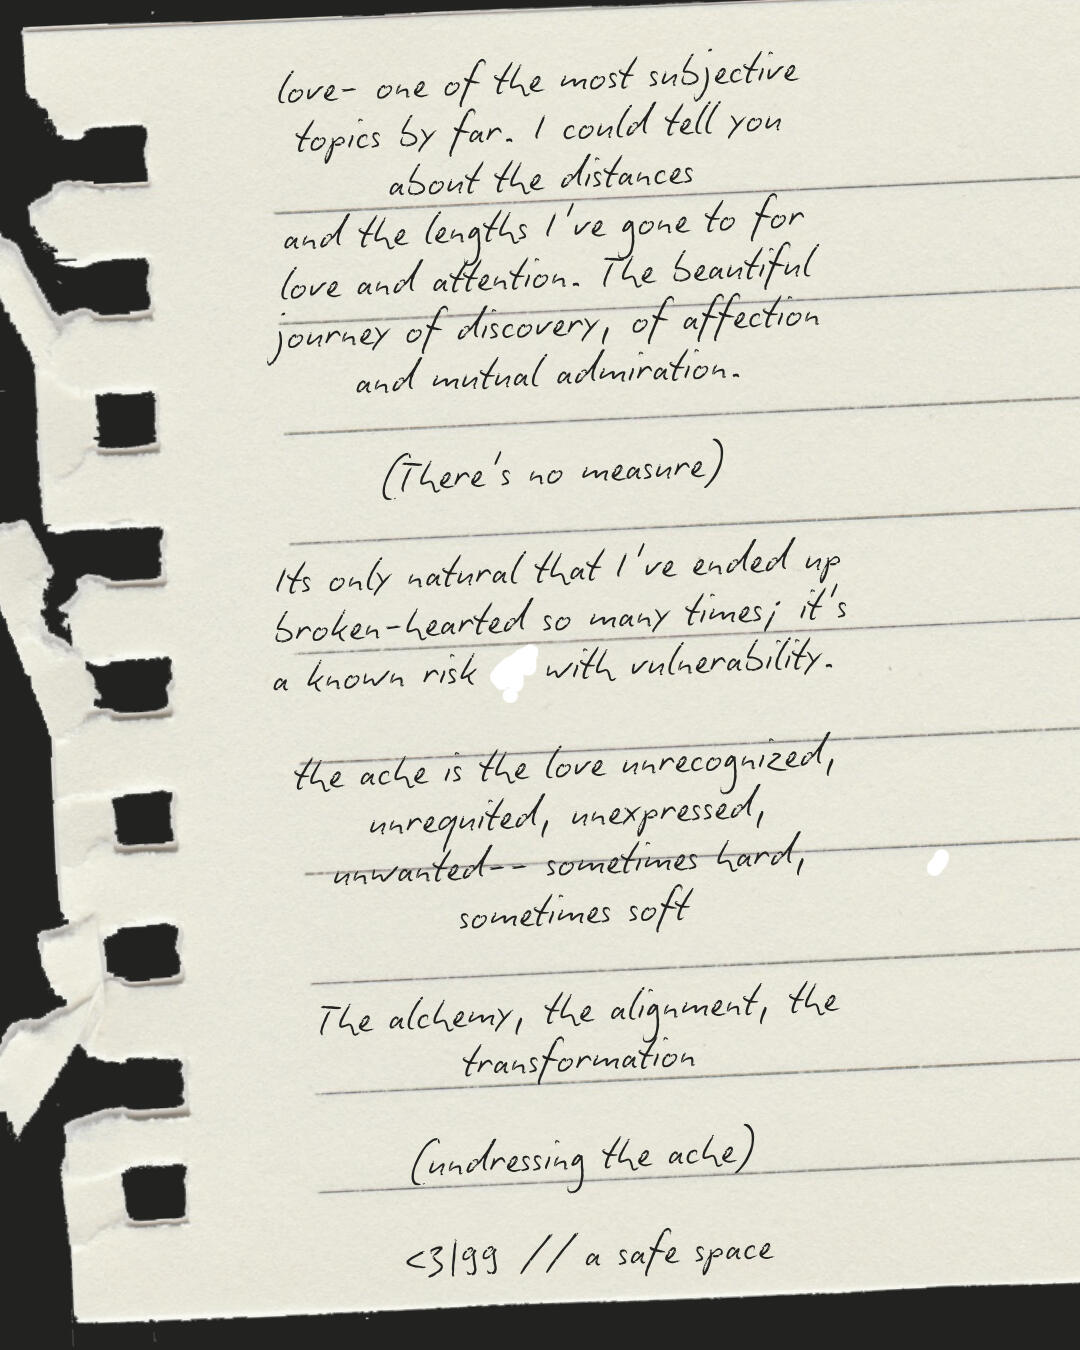 love- one of the most subjective
topics by far. I could tell you
about the distances
and the lengths I've gone to for
love and attention. The beautiful
journey of discovery, of affection
and mutual admiration.
(There's no measure)
Its only natural that I've ended up
broken-hearted so many times; it's
a known risk with vulnerability.
the ache is the love unrecognized,
unrequited, unexpressed,
unwanted-- sometimes hard,
sometimes soft
The alchemy, the alignment, the
transformation
(undressing the ache)
<3|99 // a safe space